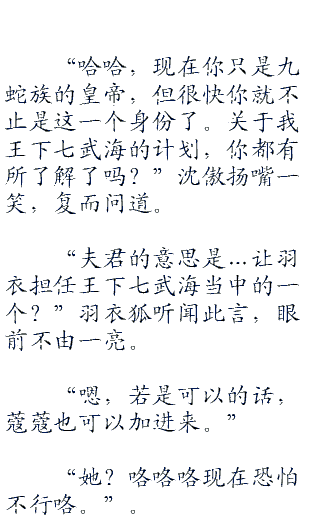 “哈哈，现在你只是九
蛇族的皇帝，但很快你就不
止是这一个身份了。关于我
王下七武海的计划，你都有
所了解了吗？”沈傲扬嘴一
笑，复而问道。
“夫君的意思是...让羽
衣担任王下七武海当中的一
个？”羽衣狐听闻此言，眼
前不由一亮。
“嗯，若是可以的话，
蔻蔻也可以加进来。”
“她？咯咯咯现在恐怕
不行咯。”。